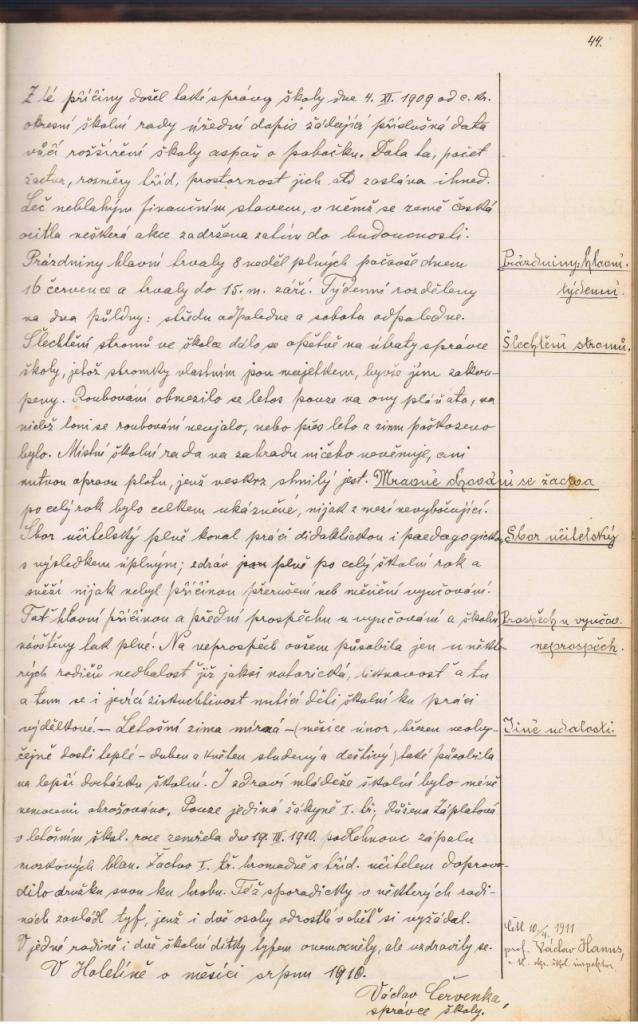 44.
Z té příčiny došel také správy školy dne 4. XI. 1909 od c. kr.
okresní školní rady úřední dopis žádající příslušná data
vůči rozšíření školy aspoň o pobočku. Data ta, počet
žactva, rozměry tříd, prostornost jich atd zaslána ihned.
Leč neblahým finančním stavem, v němž se země česká
ocitla veškerá akce zadržena zatím do budoucnosti.
Prázdniny hlavní trvaly 8 neděl plných počavše dnem
Prázdniny: hlavní.
16 července a trvaly do 15. m. září. Týdenní rozděleny
týdenní.
na dva půldny: středu odpoledne a sobotu odpoledne.
Šlechtění stromů ve školce dělo se opětně na útraty správce
Šlechtění stromů.
školy, jehož stromky vlastním jsou majetkem, byvše jím zakou-
peny. Roubování obmezilo se letos pouze na ony pláňata, na
nichž loni se roubování neujalo, nebo přes leto a zimu poškozeno
bylo. Místní školní rada na zahradu ničeho nevěnuje, ani
nutnou opravu plotu, jenž veskrz shnilý jest. Mravné chování se žactva
po celý rok bylo celkem ukázněné, nijak z mezí nevybočující.
Sbor učitelský plně konal práci didaktickou i paedagogickou
Sbor učitelský
s výsledkem úplným; zdráv jsa plně po celý školní rok a
svěží nijak nebyl příčinou přerušení neb měnění vyučování.
Toť hlavní příčinou a přední prospěchu u vyučování a školní
Prospěch u vyučov.
návštěvy tak plné. Na neprospěch ovšem působila jen u někte-
neprospěch.
rých rodičů nedbalost již jaksi notorická, a tu
a tam se i jevící zištuchtivost nutící děti školní ku práci
výdělkové. – Letošní zima mírná – (měsíce únor, březen neoby-
Jiné události.
čejně dosti teplé – duben a květen studený a deštivý) také působila
na lepší docházku školní. I zdraví mládeže školní bylo méně
nemocemi ohrožováno. Pouze jediná žákyně I. tř., Růžena Záplatová
v letošním škol. roce zemřela dne 19. III. 1910, podlehnouc zápalu
mozkových blan. Žactvo I. tř. hromadně s tříd. učitelem doprovo-
dilo družku svou ku hrobu. Též sporadicky v některých rodi-
nách zavládl tyf, jenž i dvě osoby odrostlé v oběť si vyžádal.
V jedné rodině i dvě školní dítky tyfem onemocněly, ale uzdravily se.
V Holetíně v měsíci srpnu 1910.
Václav Červenka,
správce školy.
Četl 10/4. 1911
prof. Václav Hanus,
c. k. okr. škol. inspektor